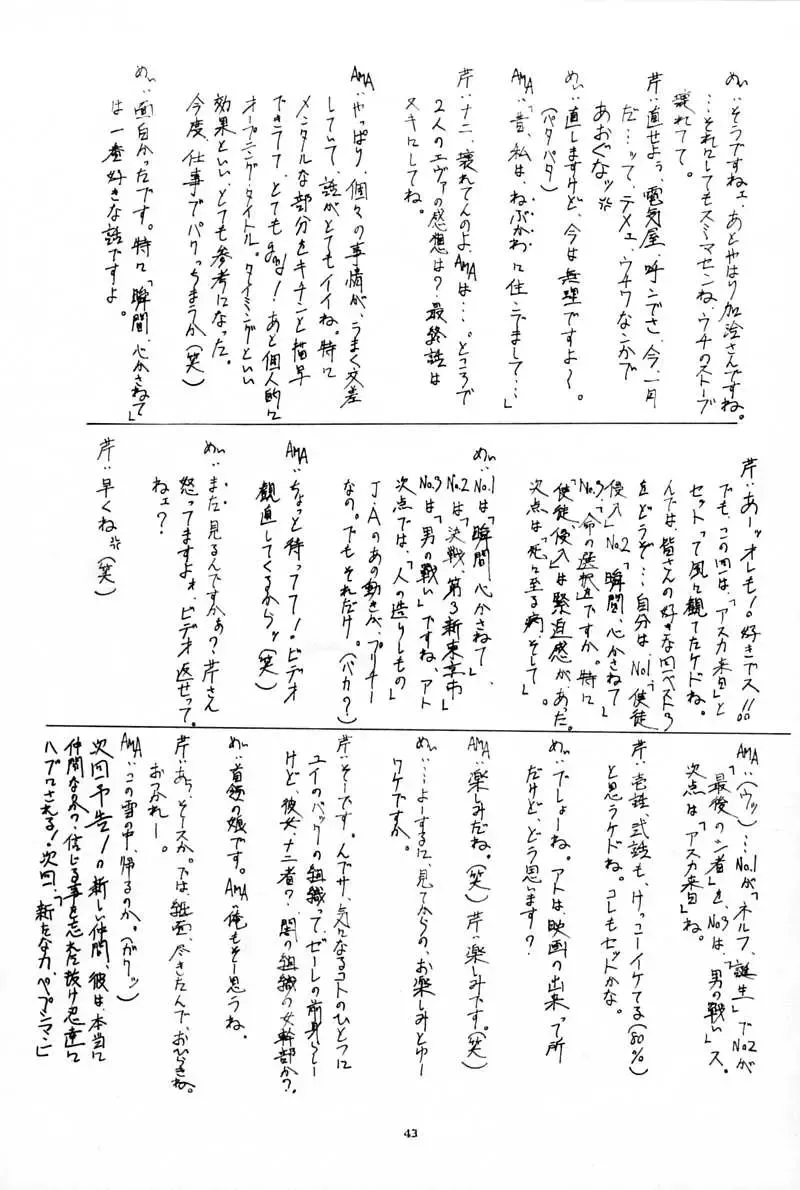 めぃ:そうですねェ、あとやはり加治さんですね。
…それにしてもスミマセンね、ウチのストーブ
壊れてて。
芹:直せよぅ、電気屋、呼ンでさ、今、一月
だ…って、テメェ、ウチワなンかで
あおぐなッ
めぃ:直しますけど、今は無理ですよ〜。
(パタパタ)
AMA:「昔、私は、ねぶかわに住ンでまして…」
芹:ナニ、壊れてんのよAMAは…。ところで
2人のエヴァの感想は?最終話は
ヌキにしてね。
AMA:やっぱり、個々の事情が、うまく交差
していて、話がとてもイイね。特に
メンタルな部分をキチンと描写
できてて、とてもgood!あと個人的に
オープニング・タイトル。タイミングといい
効果といい、とても参考になった。
今度、仕事でパクっちまうか(笑)
めぃ:面白かったです。特に「瞬間、心かさねて」
は一番好きな話ですよ。
芹:あーッオレも!好きデス!!
でも、この回は、「アスカ来日」と
セットって風に観てたケドね。
んでは、皆さんの好きな回ベスト3
をどうぞ…自分は、No.1「使徒
侵入」No.2「瞬間、心かさねて」
No.3「命の選択を」ですか。特に
「使徒、侵入」は緊迫感があった。
次点は「死に至る病、そして」
めぃ:No.1は「瞬間心かさねて」、
No.2は「決戦、第3新東京市」
No.3は「男の戦い」ですね、アト
次点では、「人の造りしもの」
J・Aのあの動きが、プリチー
なの。でもそれだけ。(バカ?)
AMA:ちょっと待ってて!ビデオ
観直してくるからッ(笑)
めぃ:まだ見るんですかぁ?芹さん
怒ってますよォ、ビデオ返せって。
ねェ?
芹:早くね(笑)
AMA:(ウッ)…No.1が「ネルフ、誕生」でNo.2が
「最後のシ者」を、No.3は、「男の戦い」ス。
次点は「アスカ来日」ね。
芹:壱話、弐話も、けっこーイケてる(80%)
と思うケドね。コレもセットかな。
めぃ:でしょーね。アトは、映画の出来って所
だけど、どう思います?
AMA:楽しみだね。(笑)芹:楽しみです。(笑)
めぃ:…よーするに、見てからの、お楽しみとゆー
ワケですか。
芹:そーです。んでサ、気になるコトのひとつに
ユイのバックの組織って、ゼーレの前身らしー
けど、彼女、ナニ者?闇の組織の女幹部か?
めぃ:首領の娘です。AMA:俺もそー思うね。
芹:あっ、そースか。では、紙面、尽きたんで、おひらきね。
おつかれー。
AMA:この雪の中、帰るのか。(ガクッ)
次回予告!の新しい仲間、彼は、本当に
仲間なのか、信じる事を忘れた抜け忍達に
ハブにされる!次回、「新たな力、ペプシマン」
43